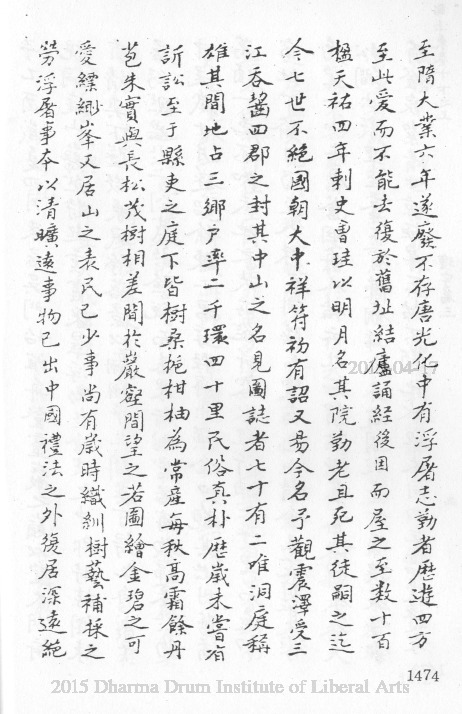 至隋大業六年遂廢不存唐光化中有浮屠志勤者歷遊四方
至此愛而不能去復於舊址結廬誦經後因而屋之至數十百
楹天祐四年刺史曹珪以明月名其院勤老且死其徒嗣之迄
今七世不絕國朝大中祥符初有詔又易今名予觀震澤受三
江吞齧四郡之封其中山之名見圖誌者七十有二唯洞庭稱
雄其間地占三鄉戶率二千環四十里民俗真朴歷歲未嘗有
訴訟至于縣吏之庭下皆樹桑梔柑柚為常產每秋高霜餘丹
苞朱實與長松茂樹相差間於巖壑間望之若圖繪金碧之可
愛縹緲峯又居山之表民已少事尚有歲時織紃樹藝補採之
勞浮屠事本以清曠遠事物已出中國禮法之外復居深遠絕
1474
2015 Dharma Drum Institute of Liberal Arts